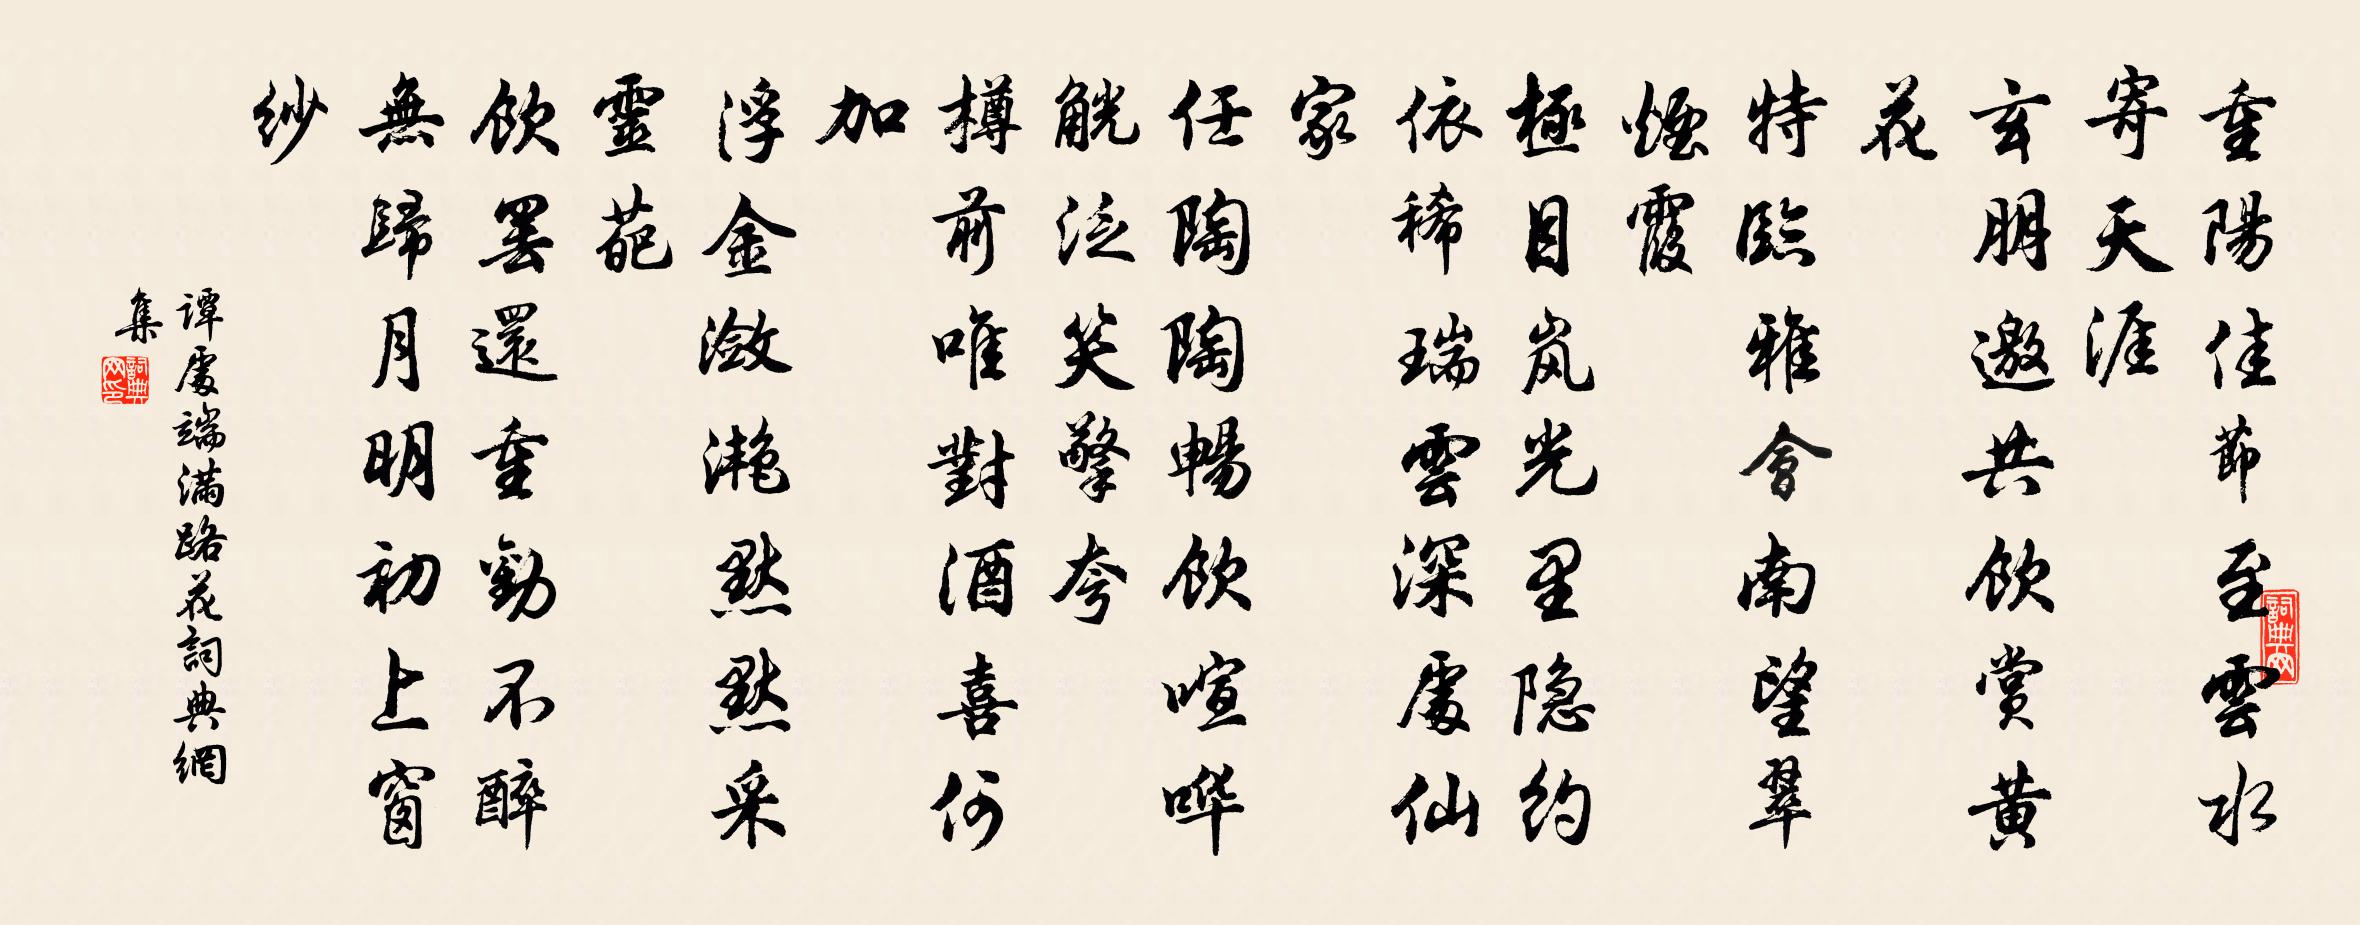 重陽佳節至雲水
寄天涯
玄朋邀共飲賞黄
花
特臨雅會南望翠
煙霞
極目岚光里隐約
依稀瑞雲深處仙
家
任陶陶暢飲喧哗
觥泛笑擎夸
樽前唯對酒喜何
加
浮金潋滟點點采
靈葩
飲罢還重勸不醉
無歸月明初上窗
纱
谭處端满路花詞典網
集
詞典网印
詞典网